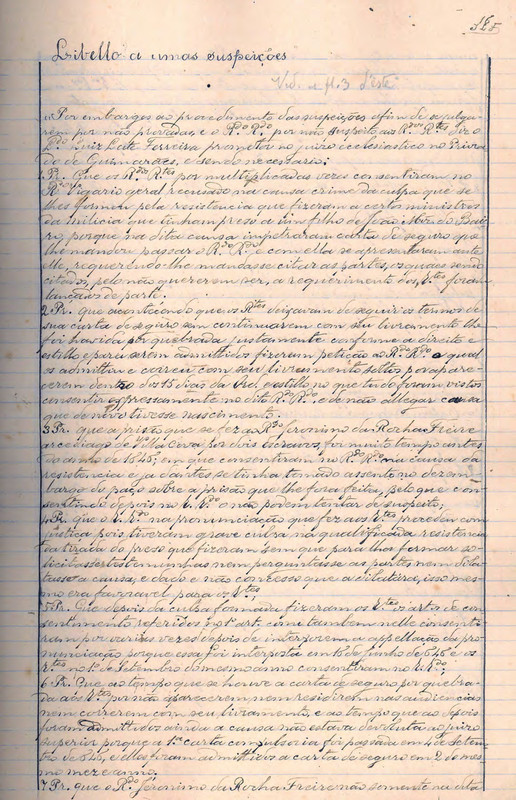 325
Libello a umas suspeições
Vid. e fl. 3 d'este
1. Por embargos ao procedimento das suspeições afim de se julga-
rem por não provadas, e o R.do R.do por não suspeito aos R.dos R.tes diz o
L.do Luiz Leite Ferreira promotor no juizo ecclesiastico no Priora-
do de Guimarães, e sendo necessario:
1 Pr. Que os R.dos R.tes por multiplicadas vezes consentiram no
R.do Vigario geral recusado na causa crime da culpa que se
lhes formou pela resistencia que fizeram a certos ministros
da milicia que tinham preso a um filho de João
porque na dita causa impetraram carta de seguro que
lhe mandou passar o R.do R.do e com ella se apresentaram ante
elle, requerendo-lhe mandasse citar as partes, os quaes sendo
citados, pelo não quererem ser, a requerimento dos R.tes foram
lançados de parte.
2 Pr. que acontecendo que os R.tes deixaram de seguir os termos de
sua carta de seguro sem continuarem com seu livramento lhe
foi havida por quebrada justamente conforme a direito e
estillo e para serem admittidos fizeram petição ao R.do R.do o qual
os admittiu e correu com seu livramento soltos, para appare-
cerem dentro dos 15 dias da lei, e estillo no que tudo foram vistos
consentir expressamente no dito R.do R.do e de não allegar causa
que de novo tivesse nascimento.
3 Pr. que a prisão que se fez ao R.do Jeronimo da Rocha Freire
arcediago de Villa Cova por dois escravos, foi muito tempo antes
do anno de 1645, em que consentiram no R.do R.do na causa da
resistencia e ja dantes se tinha tomado assento no dezem-
bargo do paço sobre a prisão que lhe fora feita, pelo que con-
sentindo depois no R.do não podem tentar de suspeito;
4 Pr. que o R.do na pronunciação que fez aos R.tes procedeu com
justiça pois tiveram grave culpa na qualificada resistencia
da tirada do preso que fizeram sem que para lha formar so-
licitasse testemunhas nem perguntasse as partes nem dila-
tasse a causa; e dado e não confesso que a dilatara, isso mes-
mo era favoravel para os R.tes;
5 Pr. Que depois da culpa formada fizeram os R.tes os art.os de con-
sentimento referidos no 1º art. como tambem nelle consenti-
ram por varias vezes depois de interporem a appellação da pro-
nunciação porque essa foi interposta em 16 de junho de 645 e os
R.tes no 1º de Setembro do mesmo anno consentiram no R.do;
6 Pr. Que ao tempo que se houve a carta de seguro por quebra-
da aos R.tes por não aparecerem nem residirem nas audiencias
nem correrem com seu livramento, e ao tempo que ao depois
foram admittidos ainda a causa não estava devoluta ao juizo
superior porque a 1.ª carta compulsoria foi passada em 4 de Setem-
bro de 645, e elles foram admittidos a carta de seguro em 2 do mes-
mo mez e anno;
7 Pr. que o R.do Jeronimo da Rocha Freire não somente nesta